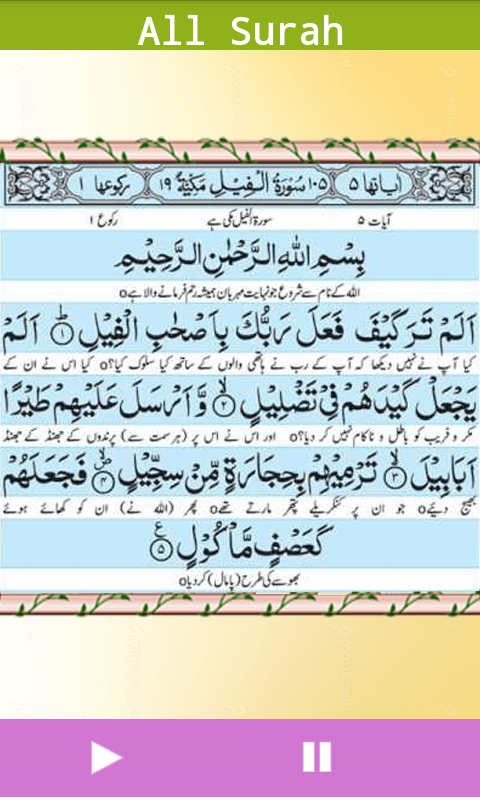 All Surah
اٰیاتها ۵ ۱۰۵ سُوْرَةُ الْفِيْلِ مَكِّيَّةٌ ۱۹ رکوعها ۱
آیات ۵ سورۃ الفیل مکی ہے رکوع ۱
بِسْمِ اللّٰهِ الرَّحْمٰنِ الرَّحِيْمِ
اللہ کے نام سے شروع جو نہایت مہربان ہمیشہ رحم فرمانے والا ہے o
اَلَمْ تَرَ كَيْفَ فَعَلَ رَبُّكَ بِاَصْحٰبِ الْفِيْلِ ؕ﴿۱﴾ اَلَمْ
کیا آپ نے نہیں دیکھا کہ آپ کے رب نے ہاتھی والوں کے ساتھ کیا سلوک کیا؟ o کیا اس نے ان کے
يَجْعَلْ كَيْدَهُمْ فِيْ تَضْلِيْلٍ ۙ﴿۲﴾ وَّ اَرْسَلَ عَلَيْهِمْ طَيْرًا
مکر و فریب کو باطل و ناکام نہیں کر دیا؟ o اور اس نے اس پر (ہر سمت سے) پرندوں کے جھنڈ کے جھنڈ
اَبَابِيْلَ ۙ﴿۳﴾ تَرْمِيْهِمْ بِحِجَارَةٍ مِّنْ سِجِّيْلٍ ۪ۙ﴿۴﴾ فَجَعَلَهُمْ
بھیج دیئے o جو ان پر کنکریلے پتھر مارتے تھے o پھر (اللہ نے) ان کو کھائے ہوئے
كَعَصْفٍ مَّاْكُوْلٍ ﴿۵﴾ ع
بھوسے کی طرح (پامال) کر دیا o